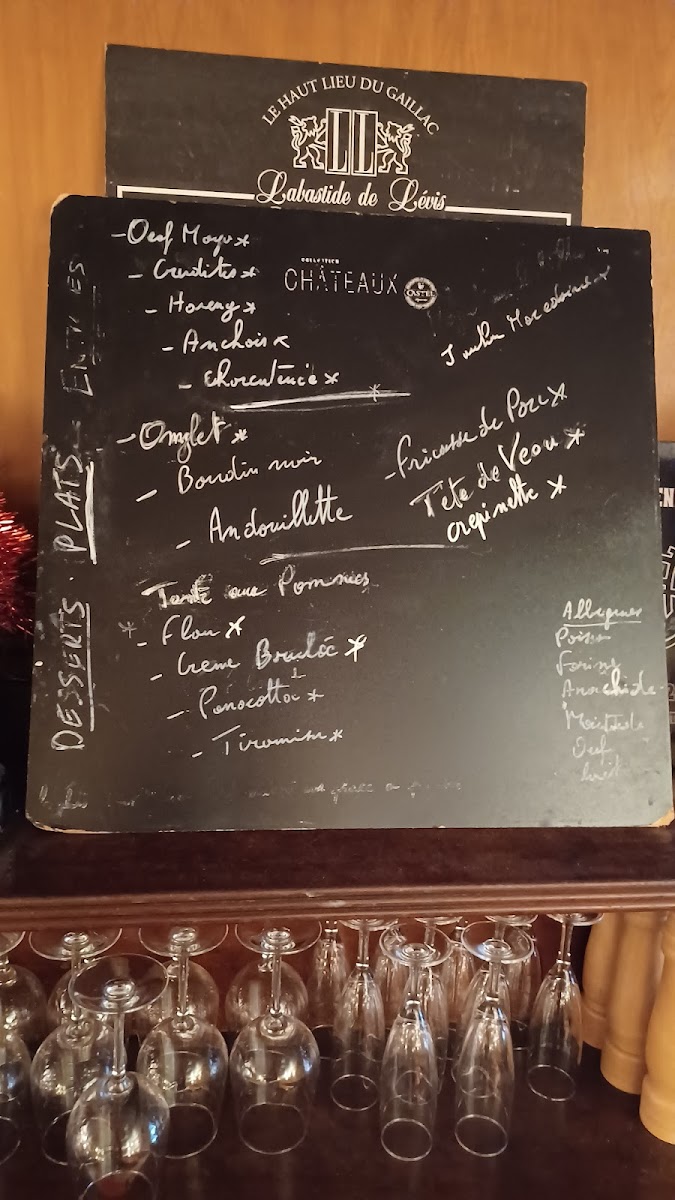 LE HAUT LIEU DU GAILLAC
LL
Labastide de Lévis
COLLECTION
CHÂTEAUX
CASTEL
ENTREES
- Oeuf Mayo *
- Crudites *
- Hareng *
- Anchois *
- Charcuterie *
Macedoine *
PLATS
- Omglet *
- Boudin noir
- Andouillette
- Fricasse de Porc *
Tete de Veau *
crepinette *
DESSERTS
Tarte aux Pommes
* - Flan *
- Creme Brulée *
- Panacotta *
- Tiramisu *
Allergenes
Poisson
Farine
Arachide
Moutarde
Oeuf
lait